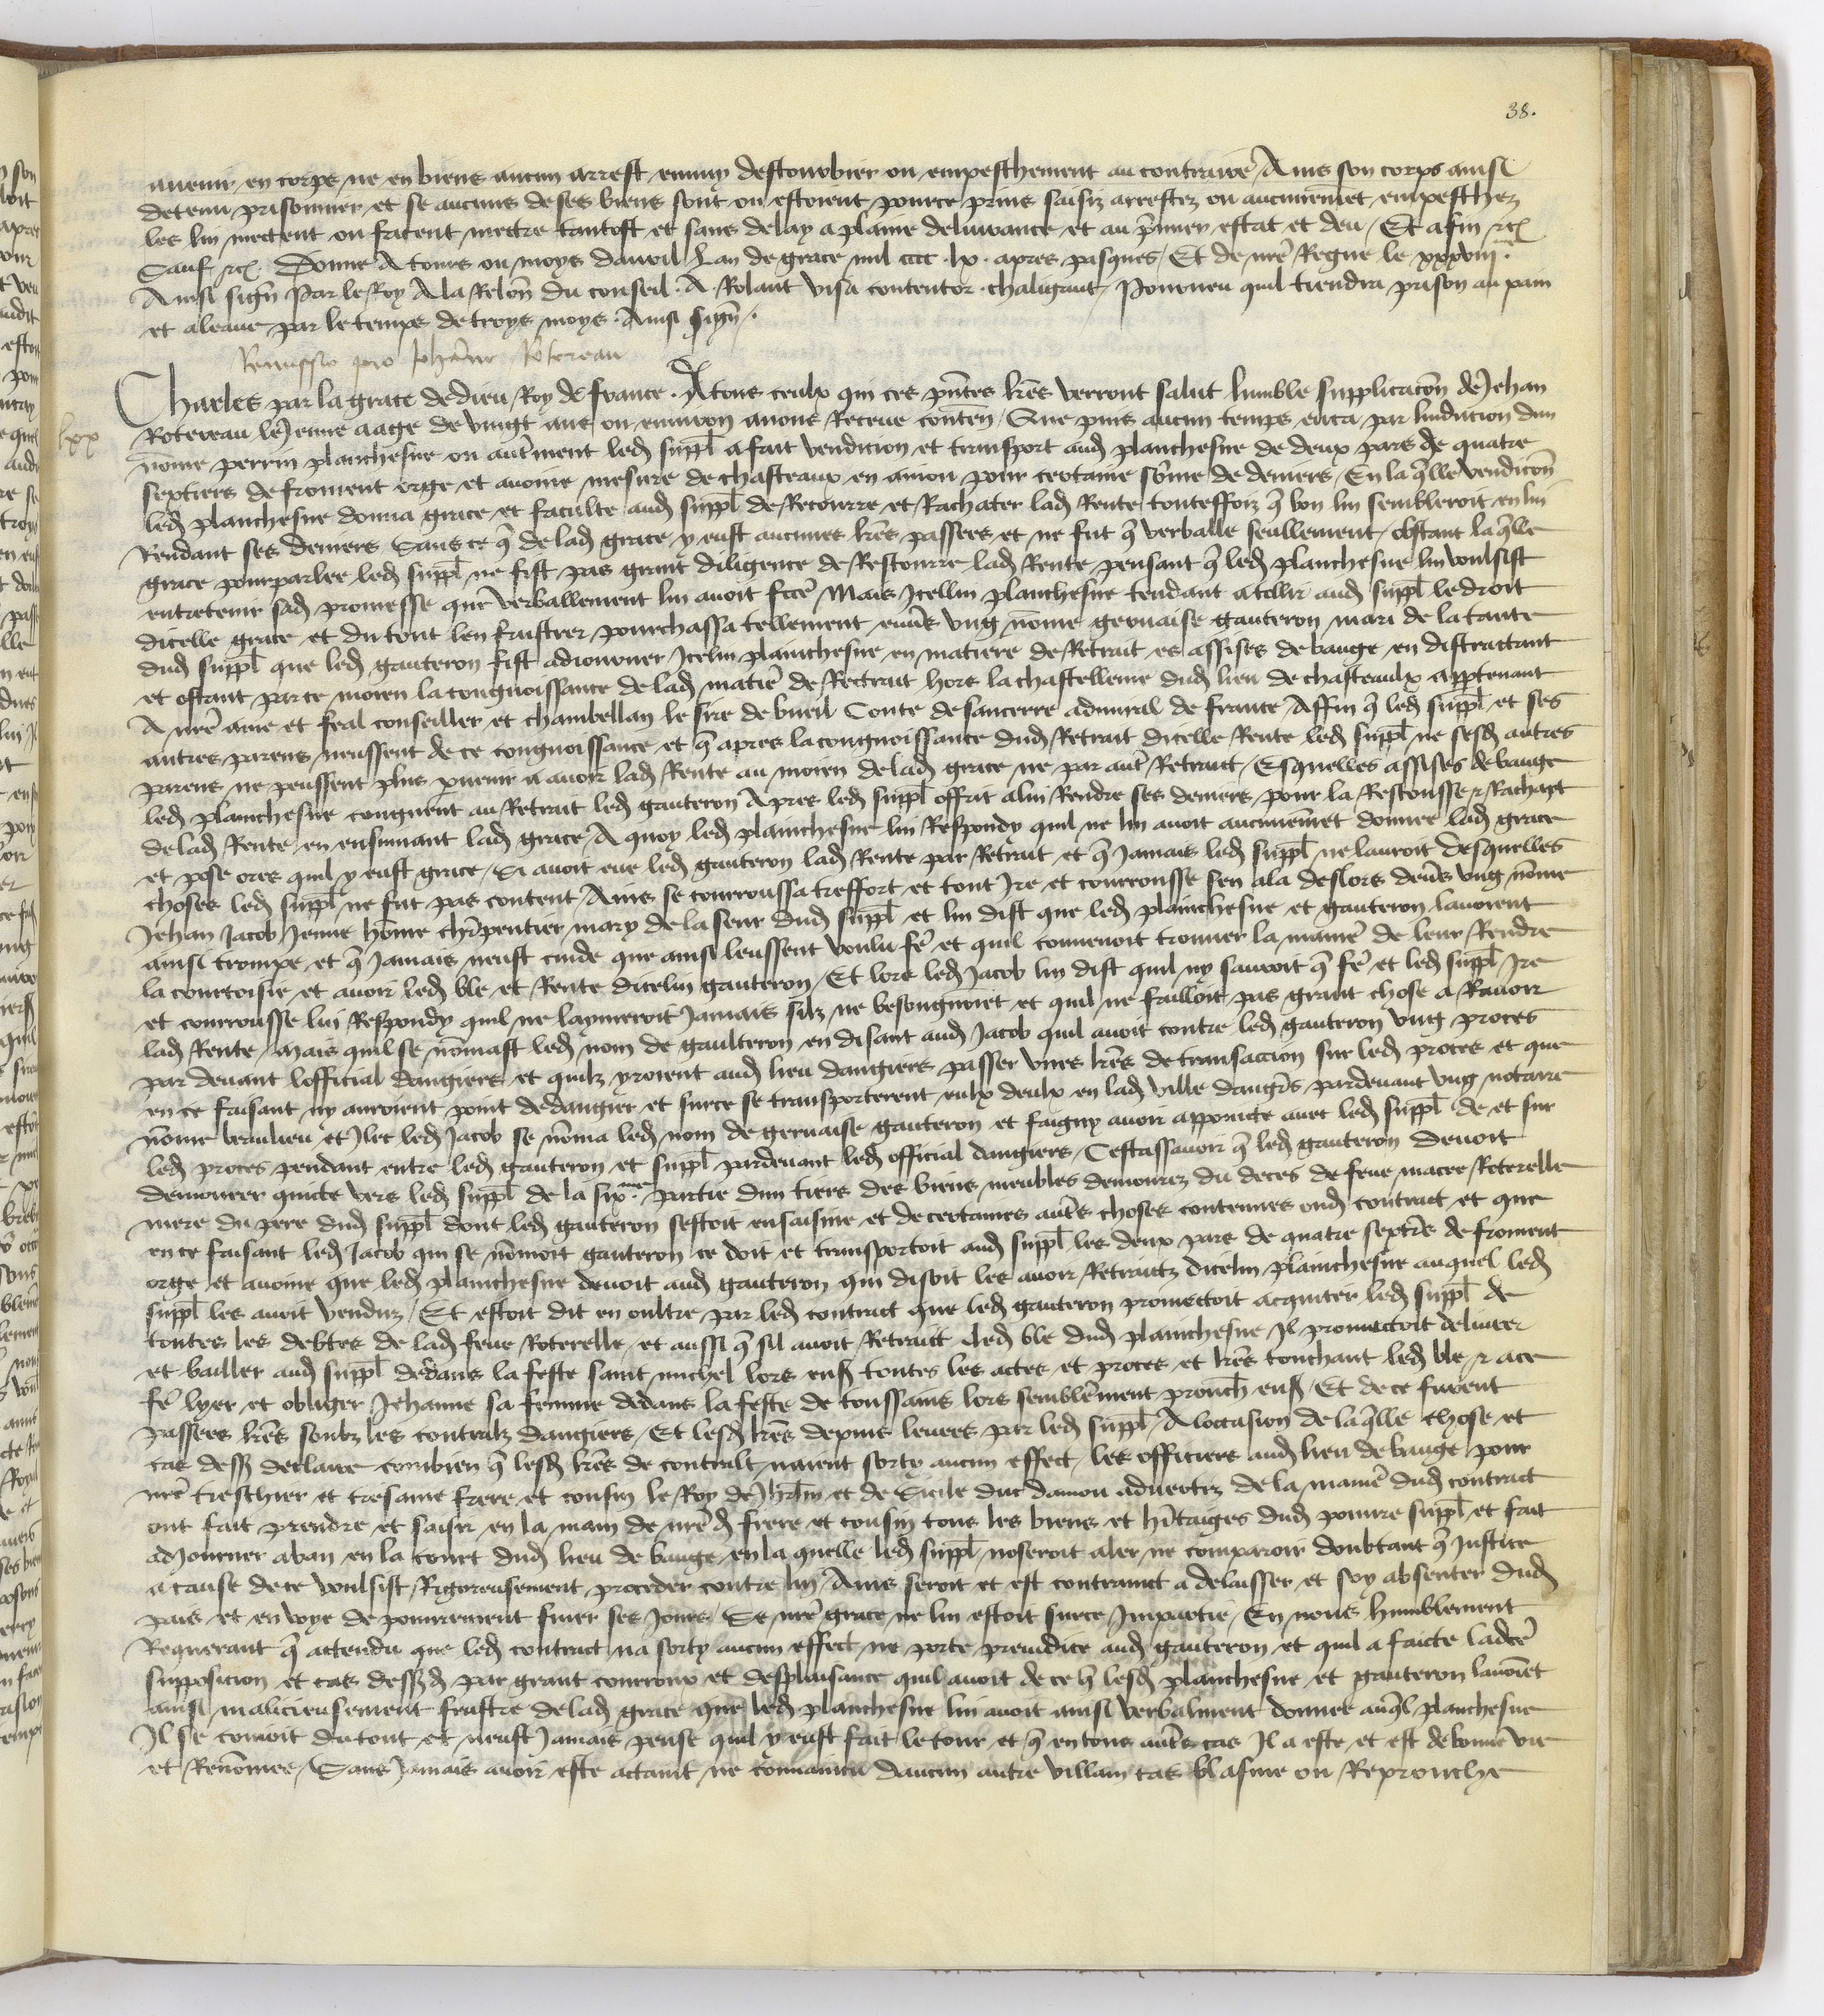 38.
avenir en corps ne en biens aucun arrest ennuy destourbier ou empeschement au contraire Ains son corps ainsi
detenu prisonnier et se aucuns de ses biens sont ou estoient pource prins saisiz arrestez ou aucunemēt empeschez
les lui mectent ou facent mectre tantost et sans delay a plaine delivrance et au p̄mier estat et deu / Et afin etc̄
Sauf etc̄ Donne A tours ou moys davril Lan de grace mil cccc lx apres pasques / Et de nr̄e Regne le xxxviii me
Ainsi sign̄ Par le Roy A la Relōn du conseil . A . Rolant visa contentor . chaligaut / Pourveu quil tiendra prison au pain
et a leaue par le temps de troys moys . Ainsi sign̄ .
Remissio pro Johānne Rotereau
lxx
Charles par la grace de dieu Roy de france . A tous ceulx qui ces pn̄tes lr̄es verront salut humble supplicacōn de Jehan
Rotereau le Jenne aage de vingt ans ou environ avons Receue conten̄ / Que puis aucun temps enca par linducion dun
nōme perrin planchesne ou autr̄ment led suppl̄ a fait vendicion et transport aud planchesne de deux pars de quatre
septiers de froment orge et avoine mesure de chasteaux en aniou pour certaine sōme de deniers / En la q̄lle vendicōn
led planchesne donna grace et faculte aud suppl̄ de Recourre et Rachater lad Rente touteffoiz q̄ bon lui sembleroit en lui
Rendant ses deniers Sans ce q̄ de lad grace y eust aucunes lr̄es passees et ne fut q̄ verballe seullement / obstant laq̄lle
grace pourparlee led suppl̄ ne fist pas grant diligence de Rescourre lad Rente pensant q̄ led planchesne lui voulsist
entretenir sad promesse que verballement lui avoit fcē Mais Icellui planchesne tendant a tollir aud suppl̄ le droit
dicelle grace et du tout len frustrer pourchassa tellement env̄s ung nōme gervaise gauteron mari de la tante
dud suppl̄ que led gauteron fist adiourner Icelui planchesne en matiere de Retrait es assises de bauge en distraictant
et ostant par ce moien la congnoissance de lad matiē de Rectrait hors la chastellenie dud lieu de chasteaulx apptenant
A nr̄e ame et feal conseiller et chambellan le sire de bueil Conte de sancerre admiral de france / Affin q̄ led suppl̄ et ses
autres parens neussent de ce congnoissance et q̄ apres la congnoissance dud Retrait dicelle Rente led suppl̄ ne sesd autres
parens ne peussent plus venir a avoir lad Rente au moien de lad grace ne par aut̄ Retrait / Esquelles assises de bauge
led planchesne congneut au Retrait led gauteron Apres led suppl̄ offrit a lui Rendre ses deniers pour la Rescousse et Rachapt
de lad Rente en ensuivant lad grace / A quoy led planchesne lui Respondy quil ne lui avoit aucunemēt donnee lad grace
et pose ores quil y eust grace / Si avoit eue led gauteron lad Rente par Retrait et q̄ Jamais led suppl̄ ne lauroit Desquelles
choses led suppl̄ ne fut pas content / Ains se courroussa tresfort et tout Ire et courrousse sen ala deslors dev̄s ung nōme
Jehan Jacob Jenne hōme chr̄pentier mary de la seur dud suppl̄ et lui dist que led planchesne et gauteron lavoient
ainsi trompe et q̄ Jamais neust cuide que ainsi leussent voulu fē et quil convenoit trouver la maniē de leur Rendre
la courtoisie et avoir led ble et Rente dicelui gauteron / Et lors led Jacob lui dist quil ny savoit q̄ fē et led suppl̄ Ire
et courrousse lui Respondy quil ne laymeroit Jamais silz ne besongnoiēt et quil ne failloit pas grant chose a Ravoir
lad Rente / mais quil se nōmast led nom de gaulteron en disant aud Jacob quil avoit contre led gauteron ung proces
par devant lofficial dangiers et quilz yroient aud lieu dangiers passer unes lr̄es de transaccion sur led proces et que
en ce faisant ny auroient point de dangier et surce se transporterent eulx deulx en lad ville dangr̄s pardevant ung notaire
nōme beaulieu et Ilec led Jacob se nōma led nom de gervaise gauteron et faigny avoir appoincte avec led suppl̄ de et sur
led proces pendant entre led gauteron et suppl̄ pardevant led official dangiers / Cestassavoir q̄ led gauteron Devoit
demourer quicte vers led suppl̄ de la six me partie dun tiers des biens meubles demourez du deces de feue macee Roterelle
mere du pere dud suppl̄ dont led gauteron sestoit ensaisine et de certaines aut̄s choses contenues oud contract et que
en ce faisant led Jacob qui se nōmoit gauteron ce doit et transportoit aud suppl̄ les deux pars de quatre septr̄s de froment
orge et avoine que led planchesne devoit aud gauteron qui disoit les avoir Retraictz dicelui planchesne auquel led
suppl̄ les avoit venduz / Et estoit dit en oultre par led contract que led gauteron promectoit acquiter led suppl̄ de
toutes les debtes de lad feue Roterelle / et aussi q̄ sil avoit Retraict led ble dud planchesne Il promectoit delivrer
et bailler aud suppl̄ dedans la feste saint michel lors ens̄ toutes les actes et proces et lr̄es touchant led ble et a ce
fē lyer et obliger Jehanne sa femme dedans la feste de toussains lors semblēment prouch̄ ens̄ / Et de ce furent
passees lr̄es soubz les contratz dangiers / Et lesd lr̄es depuis levees par led suppl̄ / A loccasion de laq̄lle chose et
cas dess̄ declaire combien q̄ lesd lr̄es de contract naient sorty aucun effect / les officiers aud lieu de bauge pour
nr̄e treschier et tresame frere et cousin le Roy de Jhrl̄m et de Sicile duc daniou advertiz de la maniē dud contract
ont fait prendre et saisir en la main de nr̄e d frere et cousin tous les biens et hr̄itaiges dud povure suppl̄ et fait
adJourner a ban en la court dud lieu de bauge en la quelle led suppl̄ noseroit aler ne comparoir doubtant q̄ Justice
a cause de ce voulsist Rigoreusement proceder contre lui / Ains seroit et est contrainct a delaisser et soy absenter dud
pais et en voye de povrement finer ses Jours / Se nr̄e grace ne lui estoit surce Impartie / En nous humblement
Requerant q̄ actendu que led contract na sorty aucun effect ne porte preiudice aud gauteron et quil a faicte ladc̄e
supposicion et cas dess̄ d par grant courroux et desplaisance quil avoit de ce q̄ lesd planchesne et gauteron lavoiēt
ainsi malicieusement frustre de lad grace que led planchesne lui avoit ainsi verbalment donnee auq̄l planchesne
Il se confioit du tout et neust Jamais pense quil y eust fait le tour et q̄ en tous aut̄s cas Il a este et est de bonne vie
et Renōmee / Sans Jamais avoir este actaint ne convaincu daucun autre villain cas blasme ou Reprouche